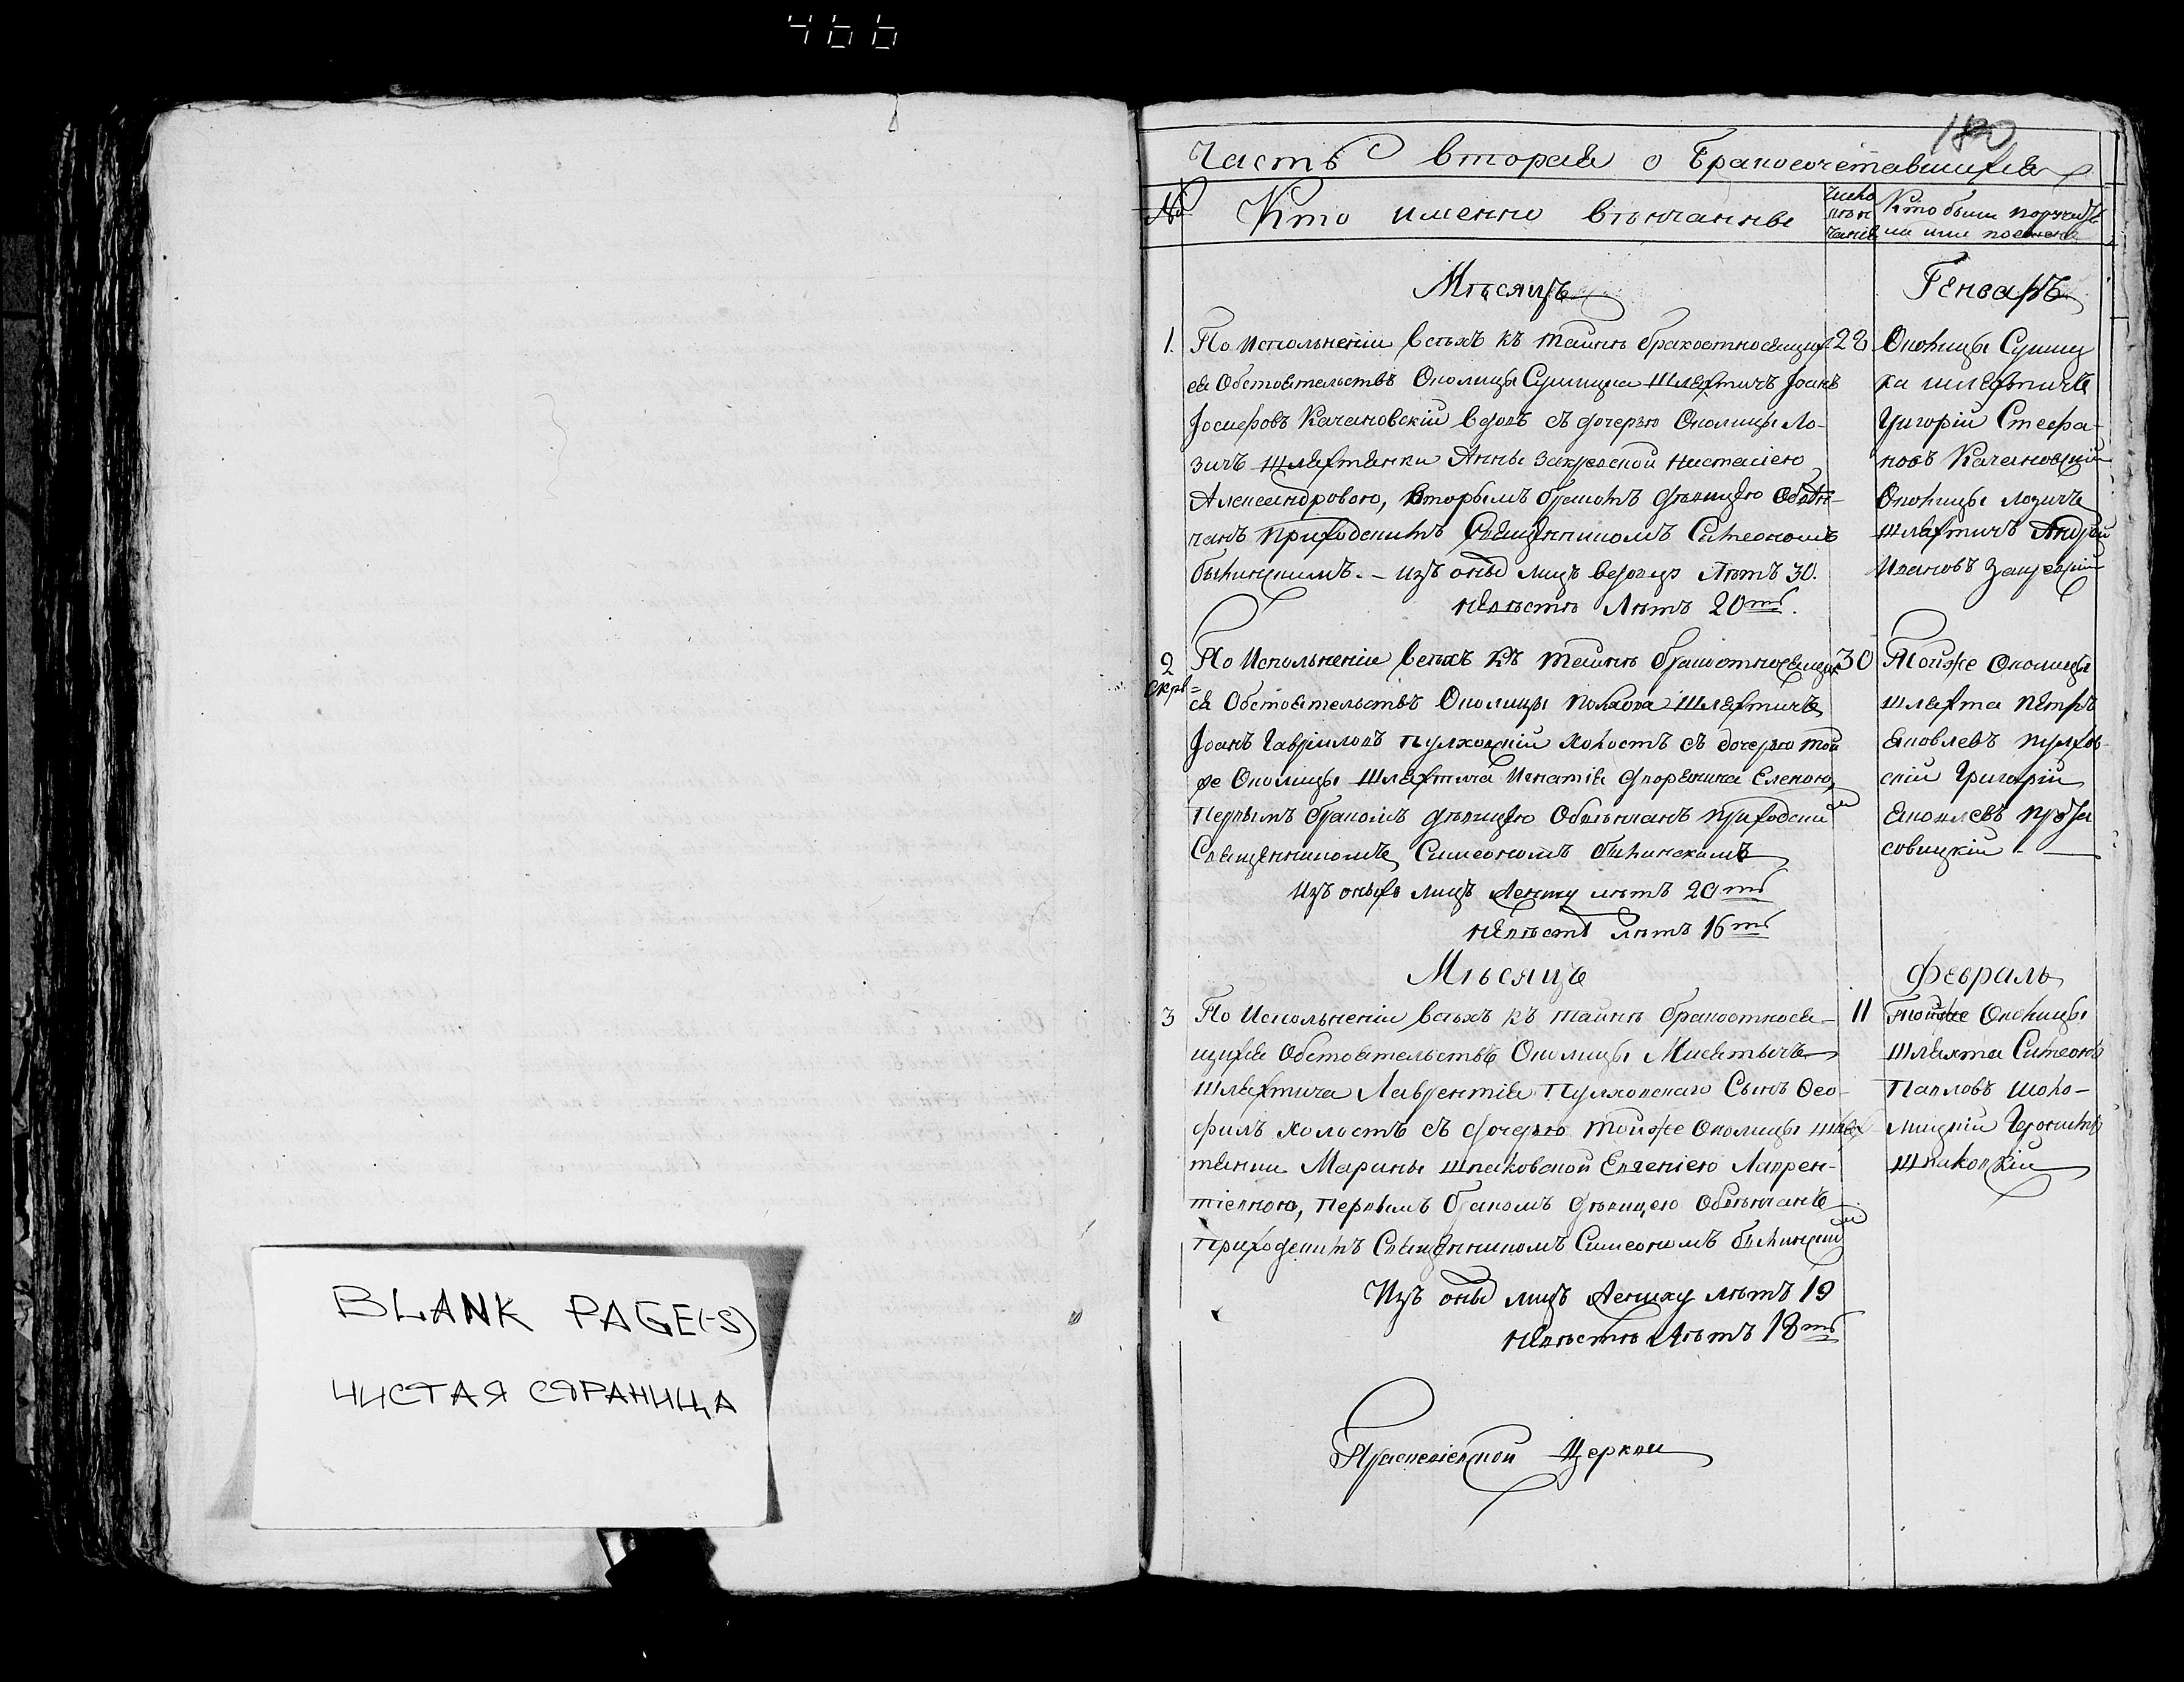 466
180
Часть вторая о Бракосочетавшихся
№ Кто именно вѣнчанны
Число вѣнчанія
Кто были поручи
ли или поезжане
Мѣсяцъ Генварь
1. По исполненіи всѣхъ къ тайнѣ бракоотносящих 28
ся Обстоятельствъ Околицы Сушицка Шляхтичъ Іоанъ
Іосифовъ Качановскій вдовъ съ дочерью Околицы Ло-
зичъ Шляхтянки Анны Закревской Настасіею
Александровою, вторымъ бракомъ дѣвицею Обвѣн-
чанъ приходскимъ Священникомъ Симеономъ
. – изъ оныхъ лицъ вдовцу лѣтъ 30.
невѣстѣ лѣтъ 20ть.
Околицы Сушиц
ка шляхтичъ
Григорій Стефа-
новъ Качановскій
Околицы лозичъ
шляхтичъ Андрей
Ивановъ Закревскій
2 По Исполненіи всѣхъ къ тайнѣ бракоотносящих 30
ся Обстоятельствъ Околицы Шляхтичъ
Іоанъ Гавріиловъ Пулховскій холостъ съ дочерью той
же Околицы Шляхтича Игнатія Еленою,
первымъ бракомъ дѣвицею Обвѣнчанъ приходским
Священникомъ Симеономъ
изъ оныхъ лицъ жениху лѣтъ 20ть
невѣстѣ лѣтъ 16ть
Тойже Околицы
шляхта Петръ
Яковлевъ Пулхов-
скій Григорій
Яковлевъ
Мѣсяцъ февраль
3 По Исполненіи всѣхъ къ тайнѣ бракоотнося- 11
щихся Обстоятельствъ Околицы
Шляхтича Лаврентія Пулховскаго Сынъ Ѳео-
филъ холостъ съ дочерью тойже Околицы шлях
тянки Марины Шпаковской Евгеніею Лаврен-
тіевною, первымъ бракомъ дѣвицею Обвѣнчанъ
приходскимъ Священникомъ Симеономъ
Изъ оныхъ лицъ жениху лѣтъ 19
невѣстѣ лѣтъ 18ть
Тойже Околицы
шляхта Симеонъ
Павловъ Шоло-
мицкій
Шпаковскій
Церкви
BLANK PAGE(-S)
ЧИСТАЯ СТРАНИЦА